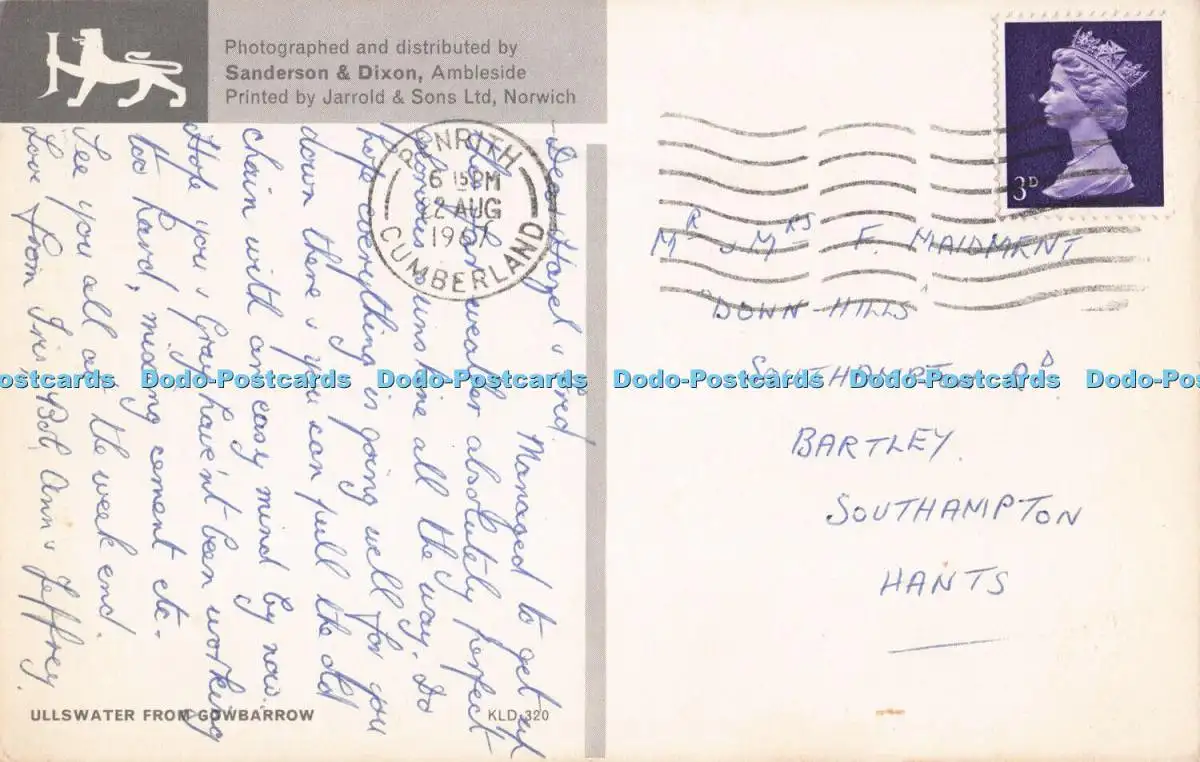 Photographed and distributed by
Sanderson & Dixon, Ambleside
Printed by Jarrold & Sons Ltd, Norwich
PENRITH
6 15 PM
2 AUG
1967
CUMBERLAND
3D
Dear Hazel & Fred.
Managed to get up
weather absolutely perfect
fine all the way. Do
hope everything is going well for you
down there & you can pull the old
chain with an easy mind by now.
Hope you & Gray haven't been working
too hard, mixing cement etc.
See you all at the week end.
Love from Iris, Bob, Ann & Jeffrey.
MR & MRS F. MAIDMENT
"DOWN-HILLS"
RD
BARTLEY.
SOUTHAMPTON
HANTS
Dodo-Postcards Dodo-Postcards Dodo-Postcards Dodo-Postcards Dodo-Postcards
ULLSWATER FROM GOWBARROW
KLD 320